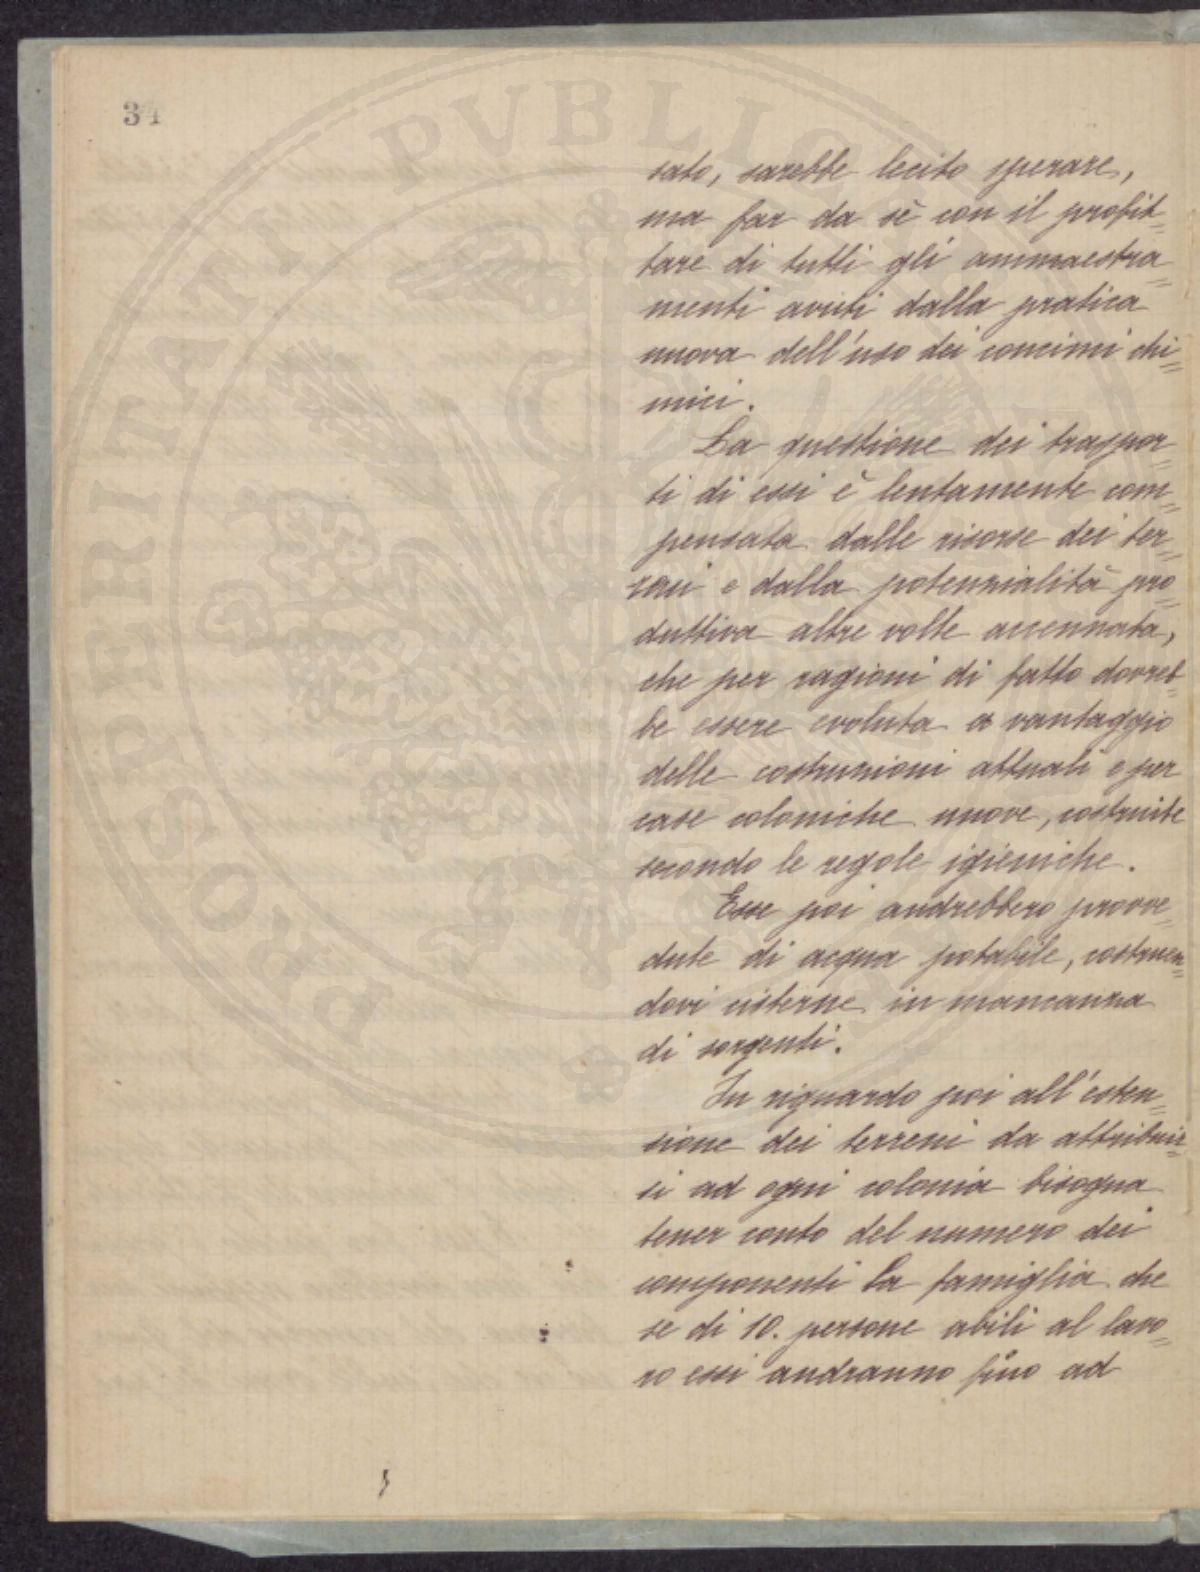 34
PROSPERITATI PVBLICAE
sato, sarebbe lecito sperare,
ma far da sè con il profit=
tare di tutti gli ammaestra=
menti avuti dalla pratica
nuova dell'uso dei concimi chi=
mici.
La questione dei traspor=
ti di essi è lentamente com=
pensata dalle risorse dei ter=
reni e dalla potenzialità pro=
duttiva altre volte accennata,
che per ragioni di fatto dovreb=
be essere evoluta a vantaggio
delle costruzioni attuali e per
case coloniche nuove, costruite
secondo le regole igieniche.
Esse poi andrebbero provve=
dute di acqua potabile, costruen=
dovi cisterne in mancanza
di sorgenti.
In riguardo poi all'esten=
sione dei terreni da attribuir=
si ad ogni colonia bisogna
tener conto del numero dei
componenti la famiglia che
se di 10. persone abili al lavo=
ro essi andranno fino ad